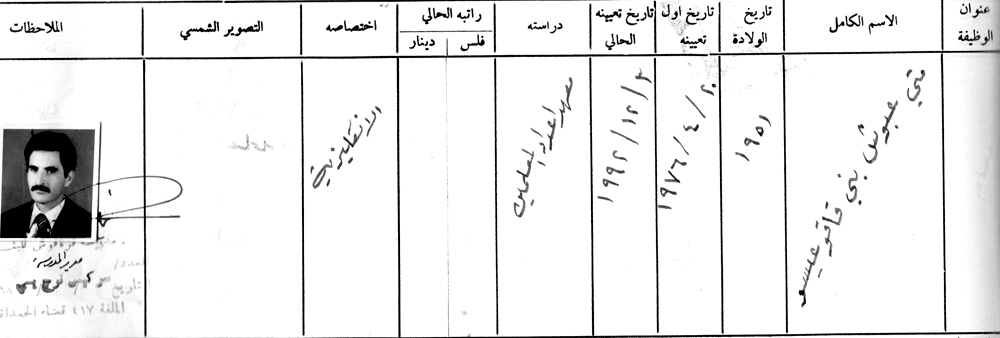 عنوان الوظيفة
الاسم الكامل
تاريخ الولادة
تاريخ اول تعيينه
تاريخ تعيينه الحالي
دراسته
راتبه الحالي
فلس
دينار
اختصاصه
التصوير الشمسي
الملاحظات
متي عبوش بني قاقو عيسو
١٩٥١
١٩٧٦/٤/٢٠
١٩٩٢/١٢/٣
معهد اعداد المعلمين
الانكليزية
مدير المدرسة
الملفة ٤١٧ قضاء الحمدا